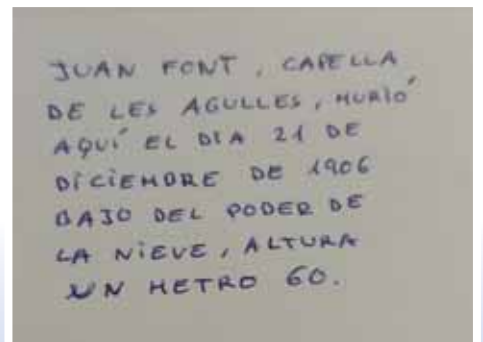 JUAN FONT, CAPELLA
DE LES AGULLES, MURIÓ
AQUÍ EL DIA 21 DE
DICIEMBRE DE 1906
BAJO DEL PODER DE
LA NIEVE, ALTURA
UN METRO 60.